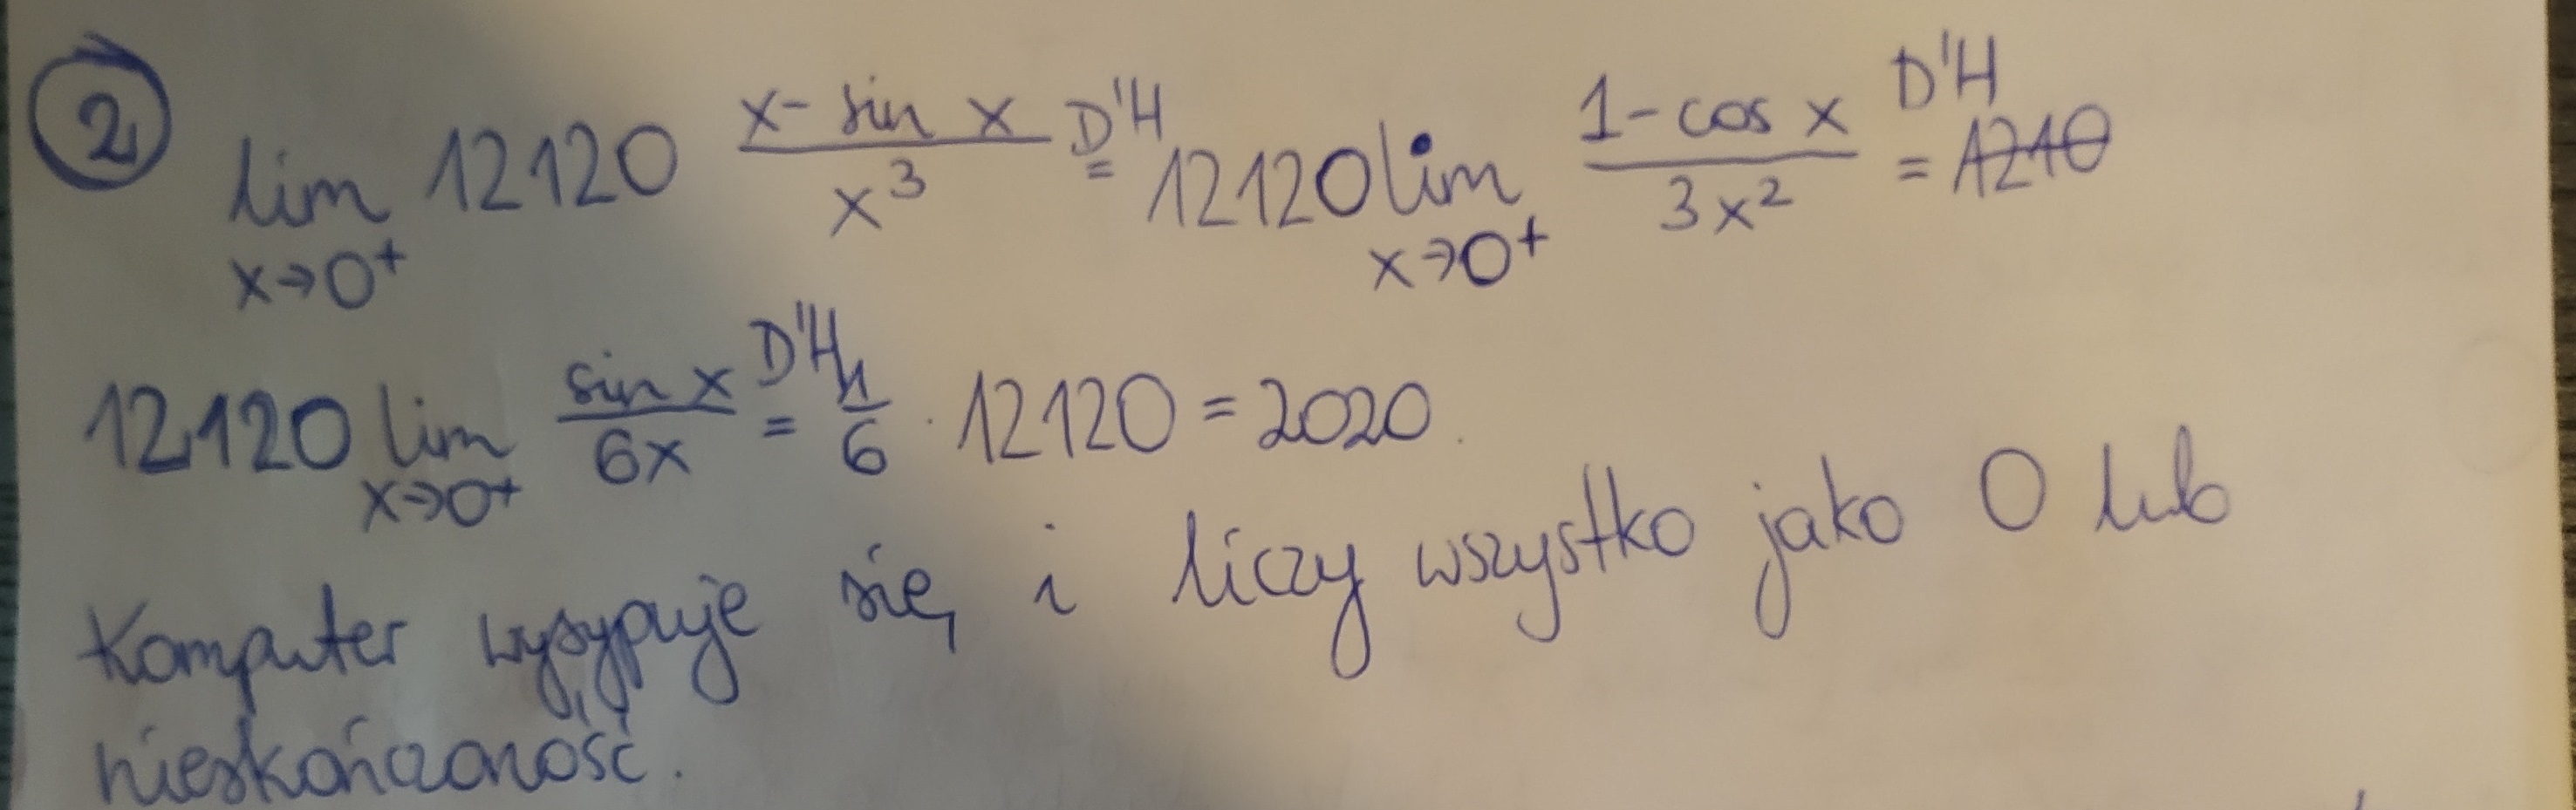 2
lim x→0⁺ 12120 (x - sin x)/(x³) D'H= 12120 lim x→0⁺ (1 - cos x)/(3x²) D'H= 1210
12120 lim x→0⁺ (sin x)/(6x) D'H= 1/6 · 12120 = 2020.
Komputer wysypuje się i liczy wszystko jako 0 lub
nieskończoność.